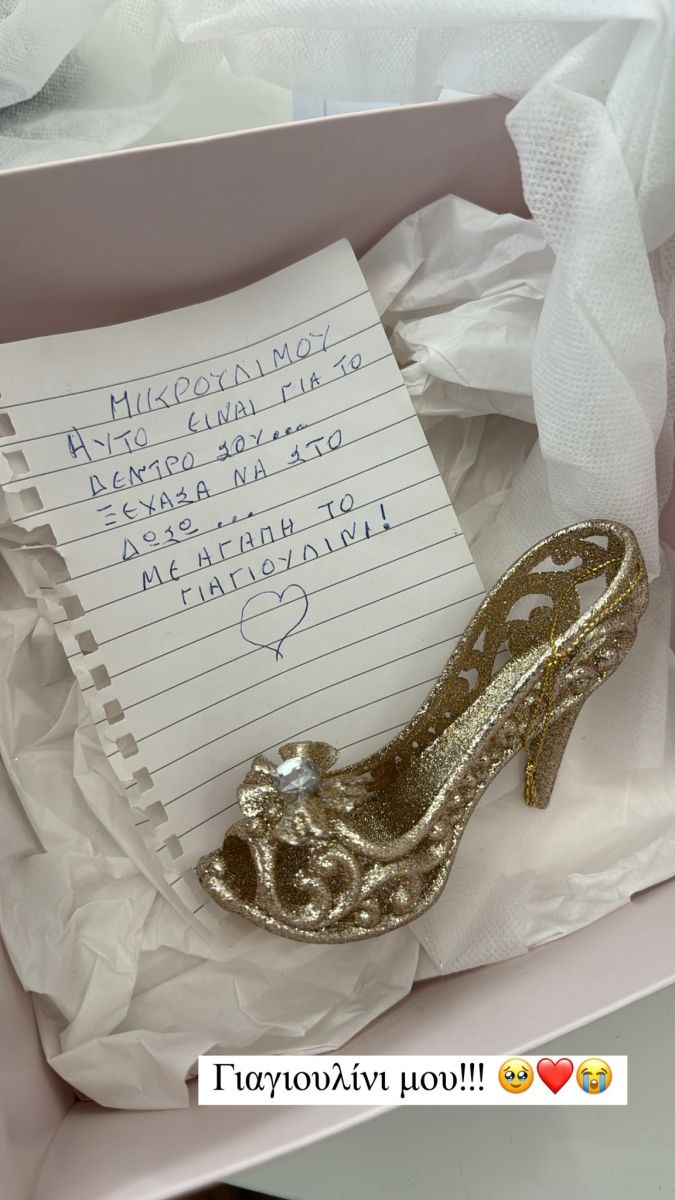 ΜΙΚΡΟΥΛΙ ΜΟΥ
ΑΥΤΟ ΕΙΝΑΙ ΓΙΑ ΤΟ
ΔΕΝΤΡΟ ΣΟΥ....
ΞΕΧΑΣΑ ΝΑ ΣΤΟ
ΔΩΣΩ ...
ΜΕ ΑΓΑΠΗ ΤΟ
ΓΙΑΓΙΟΥΛΙΝΙ!
Γιαγιουλίνι μου!!! 🥹❤️😭